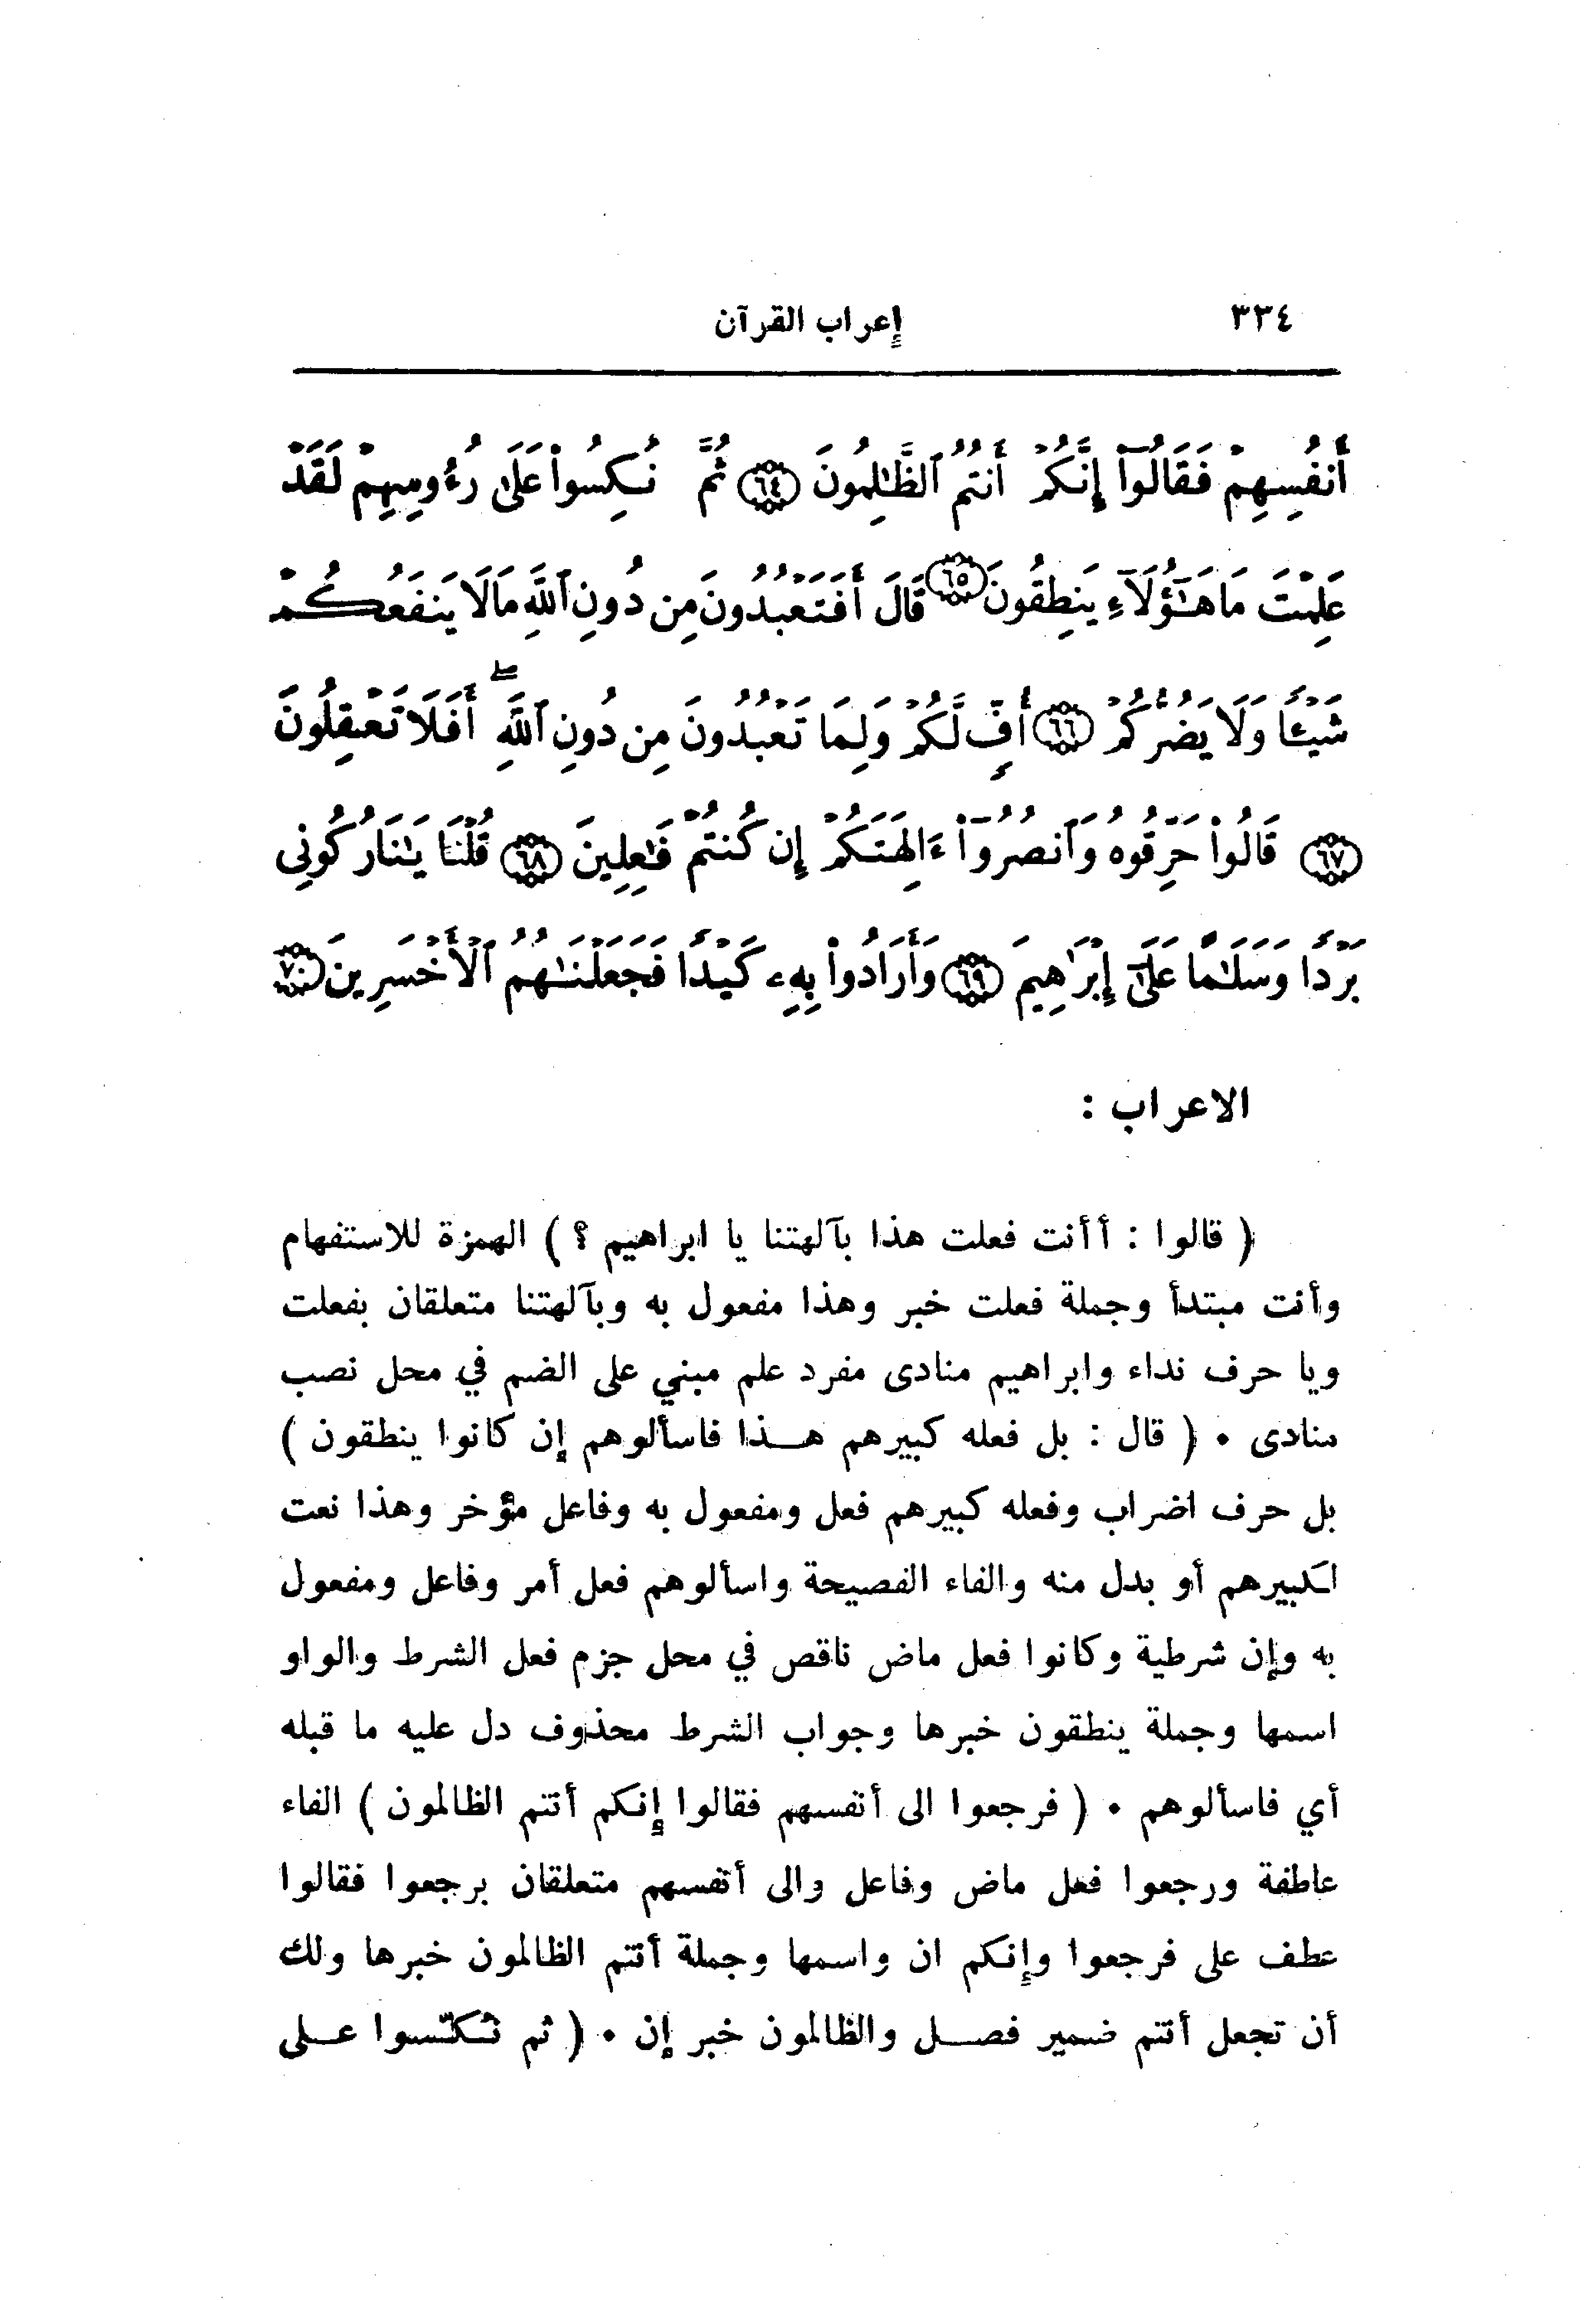 ٣٣٤ إعراب القرآن
أَنفُسِهِمْ فَقَالُوٓا۟ إِنَّكُمْ أَنتُمُ ٱلظَّـٰلِمُونَ ٦٤ ثُمَّ نُكِسُوا۟ عَلَىٰ رُءُوسِهِمْ لَقَدْ
عَلِمْتَ مَا هَـٰٓؤُلَآءِ يَنطِقُونَ ٦٥ قَالَ أَفَتَعْبُدُونَ مِن دُونِ ٱللَّهِ مَا لَا يَنفَعُكُمْ
شَيْـًٔا وَلَا يَضُرُّكُمْ ٦٦ أُفٍّ لَّكُمْ وَلِمَا تَعْبُدُونَ مِن دُونِ ٱللَّهِ ۖ أَفَلَا تَعْقِلُونَ
٦٧ قَالُوا۟ حَرِّقُوهُ وَٱنصُرُوٓا۟ ءَالِهَتَكُمْ إِن كُنتُمْ فَـٰعِلِينَ ٦٨ قُلْنَا يَـٰنَارُ كُونِى
بَرْدًا وَسَلَـٰمًا عَلَىٰٓ إِبْرَٰهِيمَ ٦٩ وَأَرَادُوا۟ بِهِۦ كَيْدًا فَجَعَلْنَـٰهُمُ ٱلْأَخْسَرِينَ ٧٠
الاعراب :
( قالوا : أأنت فعلت هذا بآلهتنا يا ابراهيم ؟ ) الهمزة للاستفهام
وأنت مبتدأ وجملة فعلت خبر وهذا مفعول به وبآلهتنا متعلقان بفعلت
ويا حرف نداء وابراهيم منادى مفرد علم مبني على الضم في محل نصب
منادى ٠ ( قال : بل فعله كبيرهم هـــذا فاسألوهم إن كانوا ينطقون )
بل حرف اضراب وفعله كبيرهم فعل ومفعول به وفاعل مؤخر وهذا نعت
لكبيرهم أو بدل منه والفاء الفصيحة واسألوهم فعل أمر وفاعل ومفعول
به وإن شرطية وكانوا فعل ماض ناقص في محل جزم فعل الشرط والواو
اسمها وجملة ينطقون خبرها وجواب الشرط محذوف دل عليه ما قبله
أي فاسألوهم ٠ ( فرجعوا الى أنفسهم فقالوا إنكم أنتم الظالمون ) الفاء
عاطفة ورجعوا فعل ماض وفاعل والى أنفسهم متعلقان برجعوا فقالوا
عطف على فرجعوا وإنكم ان واسمها وجملة أنتم الظالمون خبرها ولك
أن تجعل أنتم ضمير فصـــل والظالمون خبر إن ٠ ( ثم نكسوا عـــلى